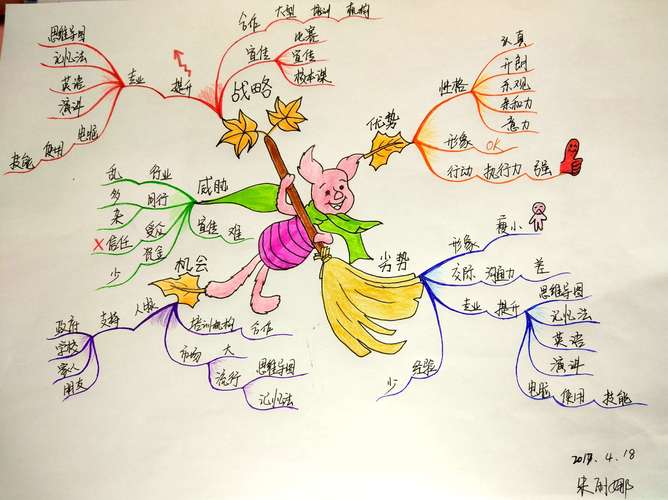 战略
合作 大型 培训 机构
宣传
比赛
宣传
校本课
提升
专业
思维导图
记忆法
英语
演讲
电脑 使用 技能
优势
性格
认真
开朗
乐观
亲和力
意力
形象 OK
行动 执行力 强
威胁
行业 乱
同行 多
杂
受众 信任 X
资金 少
宣传 难
劣势
形象 瘦小
交际 沟通力 差
专业 提升
思维导图
记忆法
英语
演讲
电脑 使用 技能
经验 少
机会
人脉 支持
政府
学校
家人
朋友
培训机构 合作
市场 大
流行
思维导图
记忆法
2017.4.18